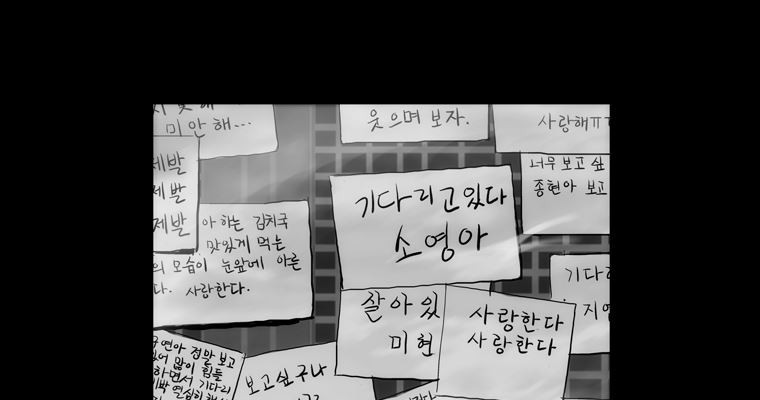 미안해...
웃으며 보자.
사랑해ㅠㅠ
너무 보고 싶
종현아 보고
제발
제발
제발
기다리고있다
소영아
아하는 김치국
맛있게 먹는
의 모습이 눈앞에 아른
다. 사랑한다.
살아있
미현
사랑한다
사랑한다
기다
지영
연아 정말 보고
많이 힘들
하면서 기다리
보고싶구나